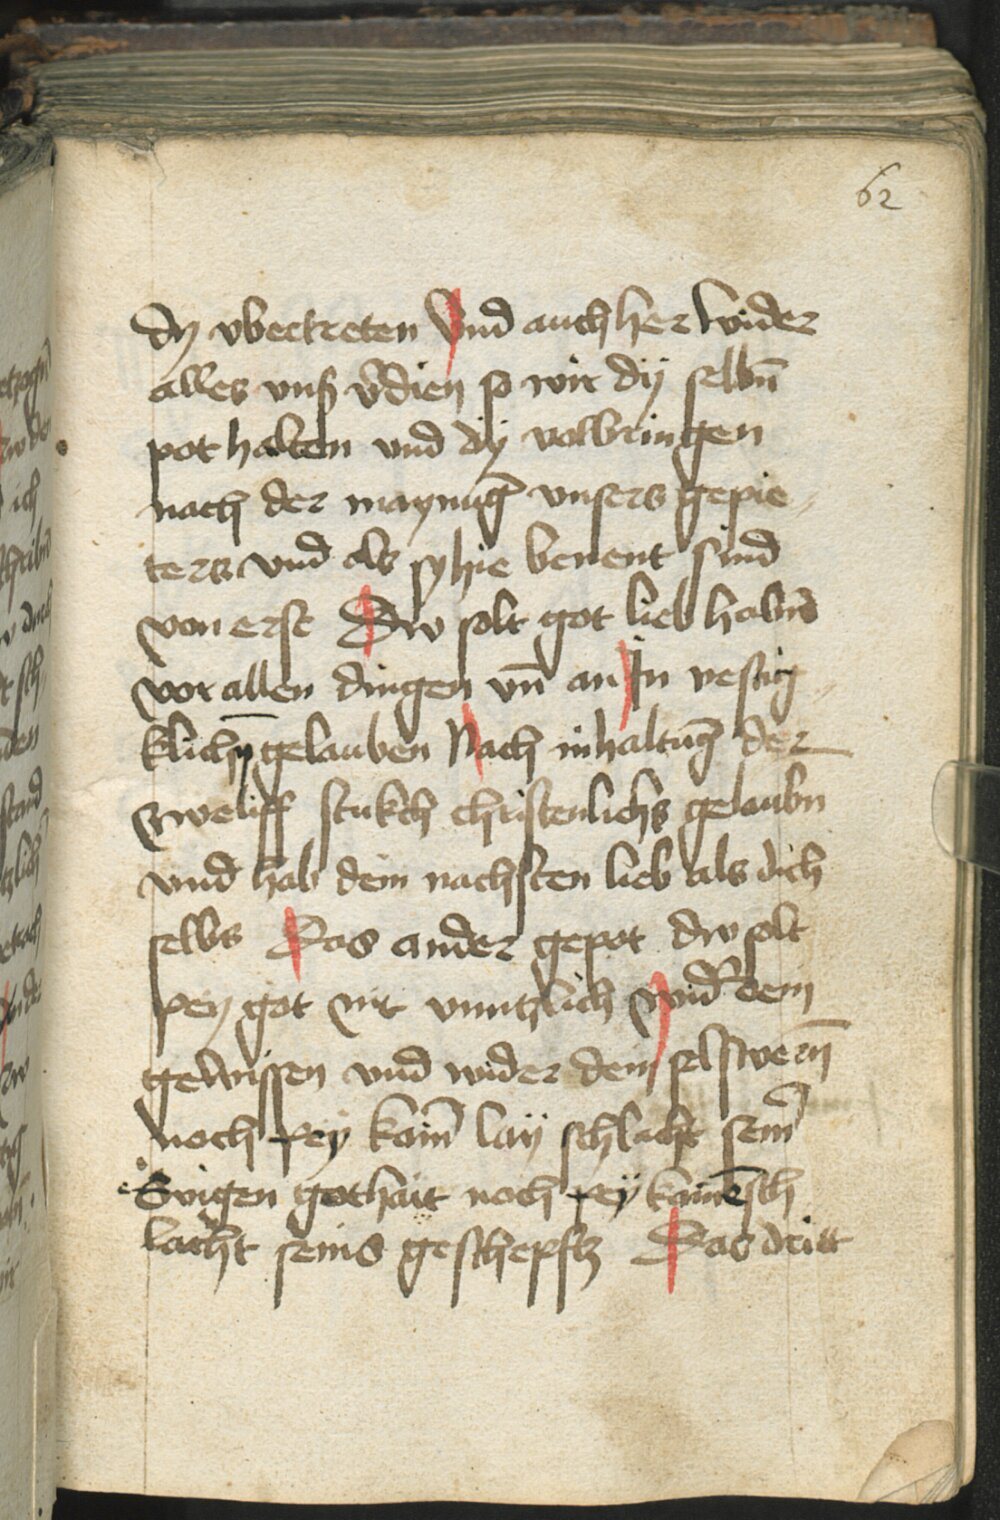 62
dy vbertreten Vnd auch her wider
alles vnß v̄dien so wir dÿ selbn̄
pot halten vnd dÿ volbringen
nach der maynūg vnsers gepie
ters vnd als sy hie benent sind
von erst Dw solt got lieb habn̄
vor allen dingen vn̄ an In vestig
klichn̄ gelauben Nach inhaltūg der
zweliff stukch christenlichs gelaubn
vnd hab dein nachsten lieb als dich
selbs Das ander gepot dw solt
pey got nit vnntzlich wid̄ dein
gewissen vnd wider dein selswern̄
noch pey kain̄ lay schlacht sein̄
Ewigen gothait noch peÿ kainē sch
lacht seins geschepftz Das dritt